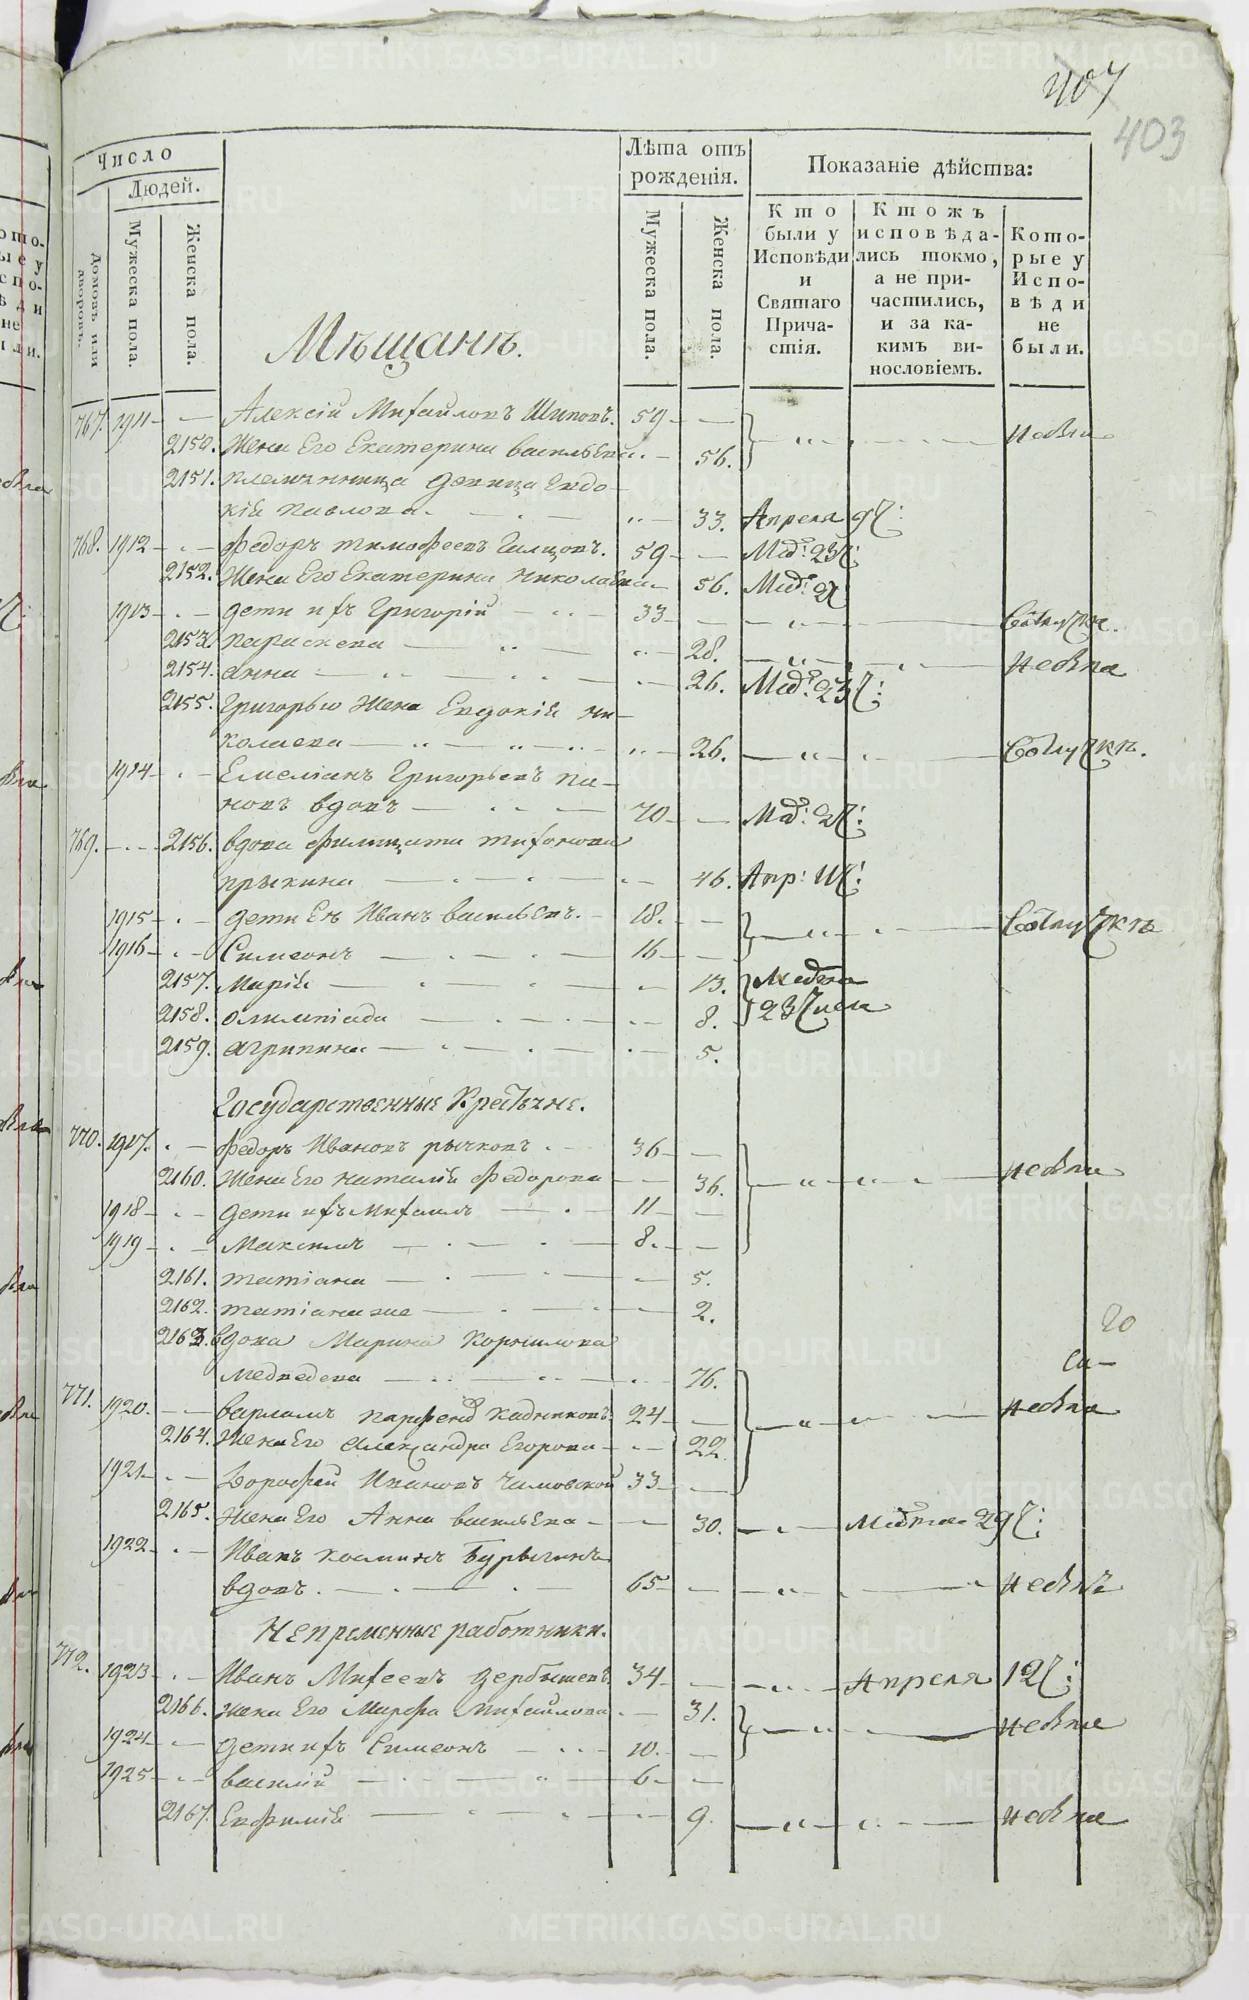 407
403
Число
Людей.
Домовъ или дворовъ.
Мужеска пола.
Женска пола.
Лѣта отъ рожденія.
Мужеска пола.
Женска пола.
Показаніе дѣйства:
Кто были у Исповѣди и Святаго Причастія.
Ктожъ исповѣдались токмо, а не причастились, и за какимъ винословіемъ.
Которые у Исповѣди не были.
Мѣщанъ.
767. 1911 Алексій Михайловъ Шиповъ. 59
2150. Жена Его Екатерина Васильева 56.
2151. племянница девица Евдо-
кія Павлова. 33. Апреля 9 Ч:
768. 1912 Федоръ тимофеевъ 59 23 Ч:
2152. Жена Его Екатерина Николаева 56.
1913 дети ихъ Григорій 33
2153. параскева 28.
2154. анна 26. 23 Ч:
2155. Григорью Жена Евдокія Ни-
колаева 26.
1914 Емеліанъ Григорьевъ па-
новъ вдовъ 70
769. 2156. вдова Филицата тихонова
46. Апр: 11 Ч:
1915 дети Ея Иванъ Васильевъ. 18.
1916 Симеонъ 16
2157. Марія 13.
2158. олимпіада 8. 23 Числа
2159. агрипина 5.
Государственные Крестьяне.
770. 1917. Федоръ Ивановъ рычковъ 36
2160. Жена Его Наталія Федорова 36.
1918 дети ихъ Михаилъ 11
1919 Максимъ 8.
2161. татіана 5.
2162. татіана же 2.
2163. вдова Марина Корнилова
медведева 76.
20
771. 1920. варламъ 24
2164. Жена Его александра Егорова 22
1921 Дорофей Ивановъ 33
2165. Жена Его Анна васильева 30. 29 Ч:
1922 Иванъ козминъ
вдовъ. 65
Непременные работники.
772. 1923 Иванъ Михеевъ дербышевъ 34 Апреля 12 Ч:
2166. жена Его Марфа Михайлова 31.
1924 дети ихъ Симеонъ 10.
1925 василій 6
2167. Евфимія 9.
METRIKI.GASO-URAL.RU